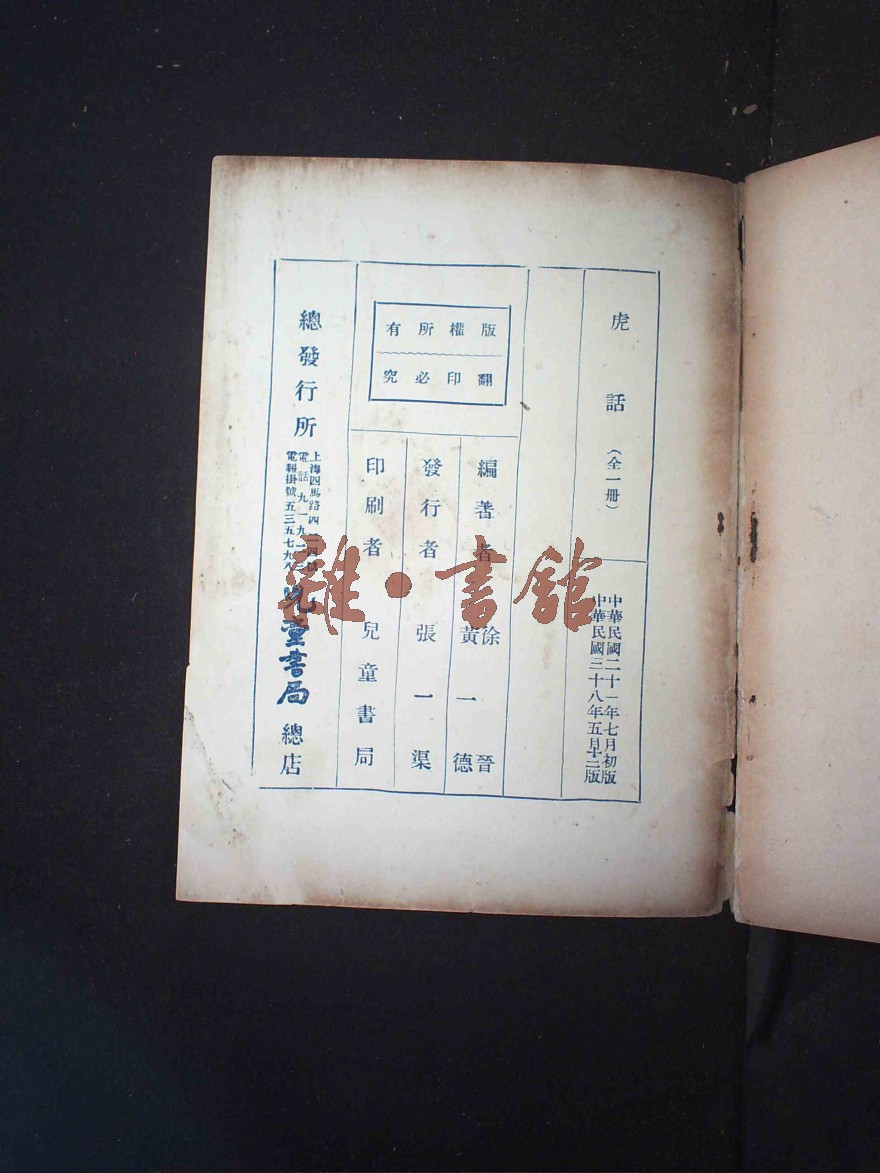 虎話（全一冊）
中華民國二十一年七月初版
中華民國三十八年五月十二版
版權所有
翻印必究
編著者 徐晉 黃一德
發行者 張一渠
印刷者 兒童書局
總發行所
上海四馬路四二四號
電話九一九二
電報掛號五三五七九八
兒童書局
總店
雜·書館